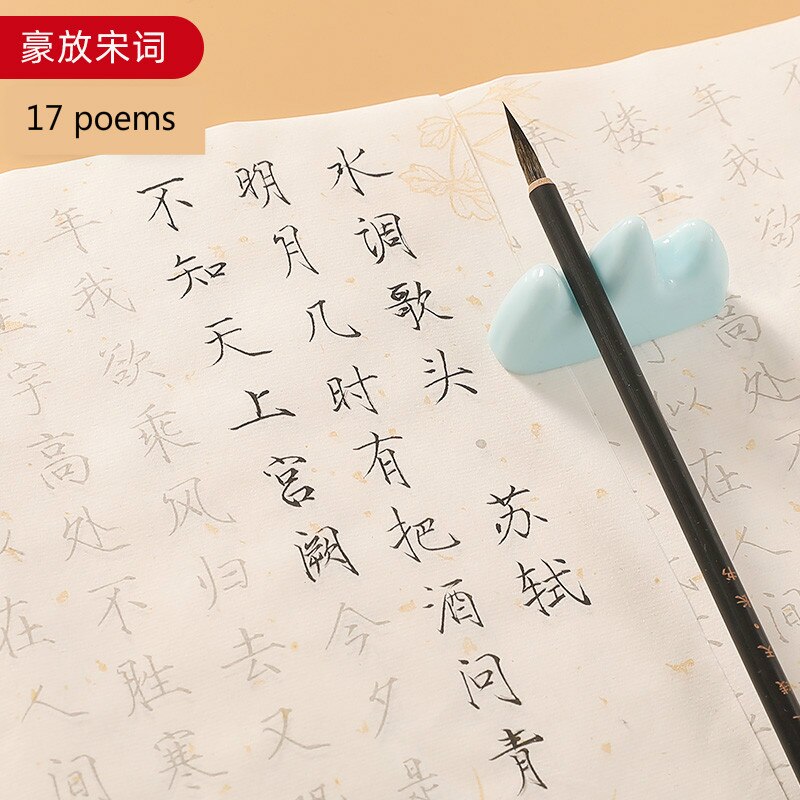 豪放宋词
17 poems
年我欲
楼玉
高处不
似在人间
水调歌头·苏轼
明月几时有把酒问青
不知天上宫阙今夕是
年我欲乘风归去又
宇高处不胜寒
在人间